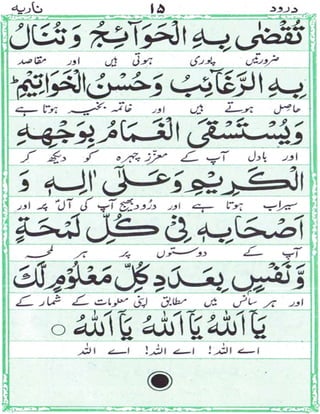 درود ۱۵ ناریہ
تُقْضٰى بِهِ الْحَوَآئِجُ وَ تُنَالُ
ضرورتیں پوری ہوتی ہیں اور مقاصد
بِهِ الرَّغَآئِبُ وَحُسْنُ الْخَوَاتِيْمِ
حاصل ہوتے ہیں اور خاتمہ بخیر ہوتا ہے
وَيُسْتَسْقَى الْغَمَامُ بِوَجْهِهِ
اور بادل آپ کے معزز چہرہ کو دیکھ کر
الْكَرِيْمِ وَعَلٰى اٰلِهٖ وَ
سیراب ہوتا ہے اور درود بھیج آپ کی آل پر اور
اَصْحَابِهٖ فِىْ كُلِّ لَمْحَةٍ
آپ کے دوستوں پر ہر لمحہ
وَّنَفَسٍ بِعَدَدِ كُلِّ مَعْلُوْمٍ لَّكَ
اور ہر سانس میں مطابق اپنی معلومات کے شمار کے
يَآ اَللهُ يَآ اَللهُ يَآ اَللهُ
اے اللہ! اے اللہ! اے اللہ